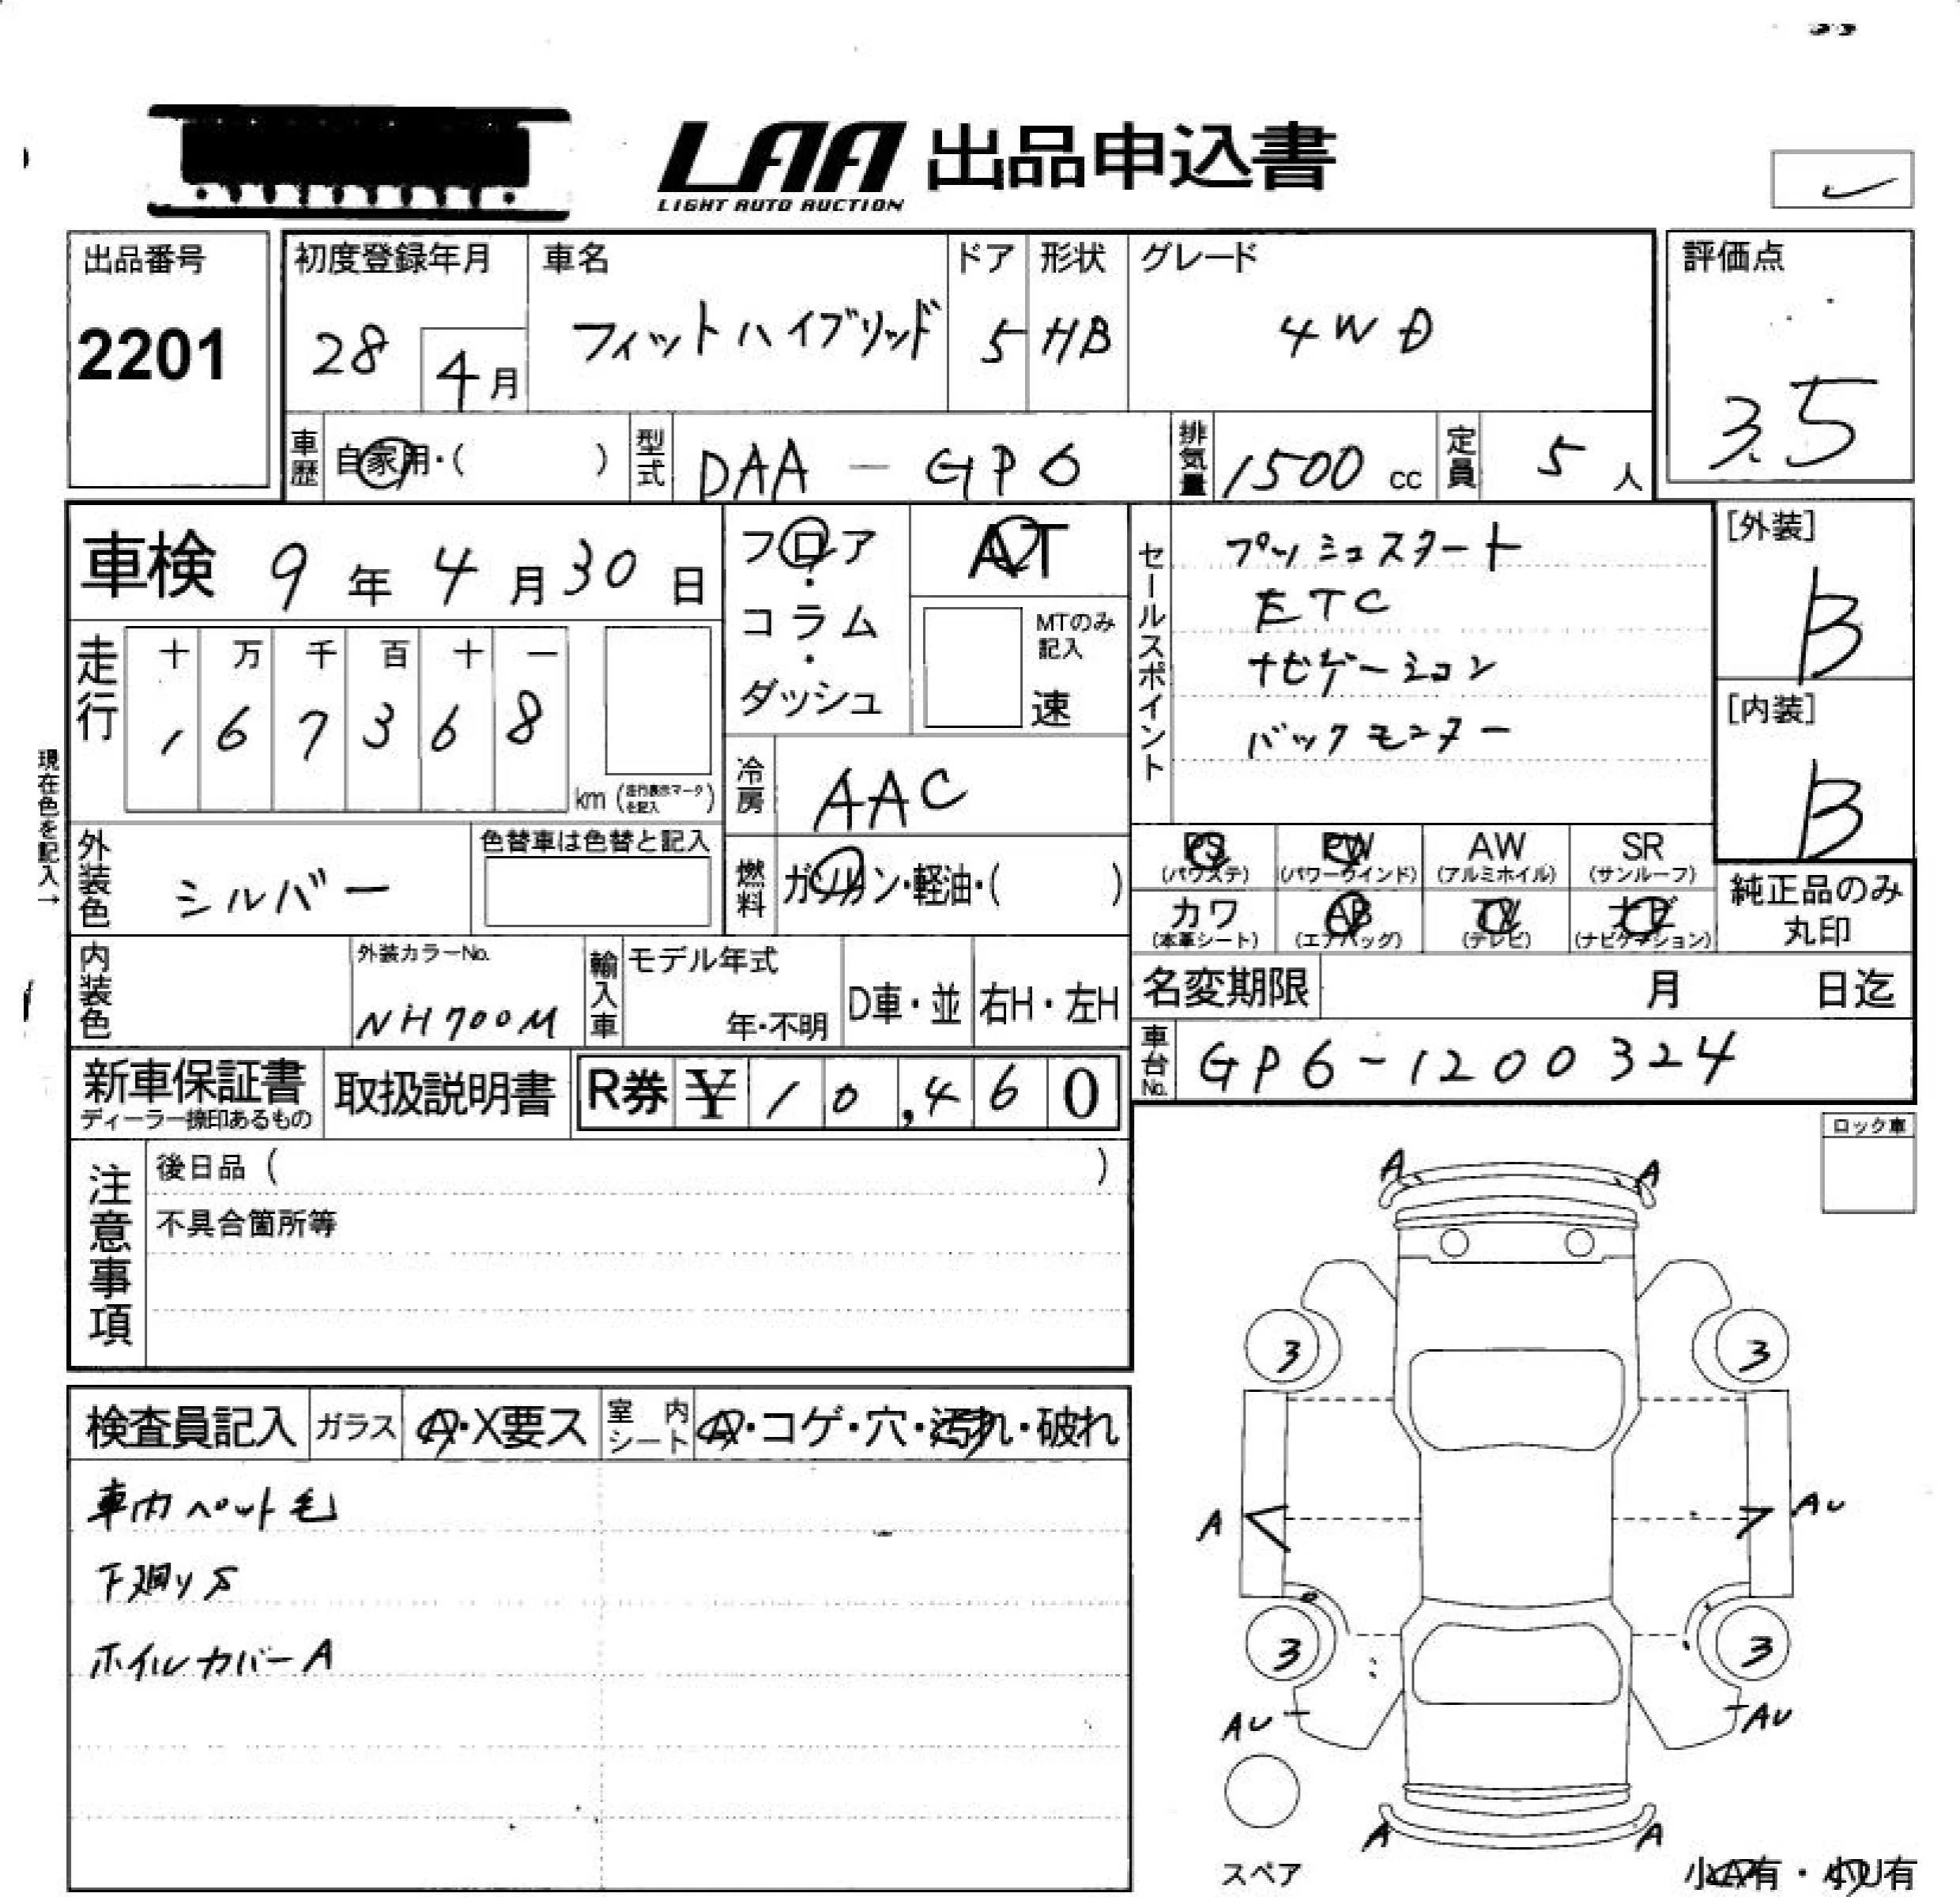 LAA 出品申込書
LIGHT AUTO AUCTION
出品番号
2201
初度登録年月
28 4月
車名
フィットハイブリッド
ドア
5
形状
HB
グレード
4WD
評価点
3.5
車歴 自家用・( )
型式 DAA-GP6
排気量 1500 cc
定員 5 人
車検 9年4月30日
走行
十 万 千 百 十 一
1 6 7 3 6 8
km (走行表示マークを記入)
現在色を記入→
フロア・コラム・ダッシュ
AT
MTのみ記入
速
冷房 AAC
セールスポイント
プッシュスタート
ETC
ナビゲーション
バックモニター
[外装]
B
[内装]
B
外装色 シルバー
色替車は色替と記入
燃料 ガソリン・軽油・( )
PS (パワステ)
PW (パワーウインド)
AW (アルミホイル)
SR (サンルーフ)
カワ (本革シート)
AB (エアバッグ)
TV (テレビ)
ナビ (ナビゲーション)
純正品のみ
丸印
内装色
外装カラーNo.
NH700M
輸入車
モデル年式
年・不明
D車・並
右H・左H
名変期限 月 日迄
車台No. GP6-1200324
新車保証書
ディーラー捺印あるもの
取扱説明書
R券 ¥ 10,460
ロック車
注意事項
後日品 ( )
不具合箇所等
検査員記入
ガラス A・X要ス
室内シート A・コゲ・穴・汚れ・破れ
車内ペット毛
下廻りS
ホイルカバーA
A A
3 3
A AU
3 3
AU AU
A A
スペア
小A有・小U有